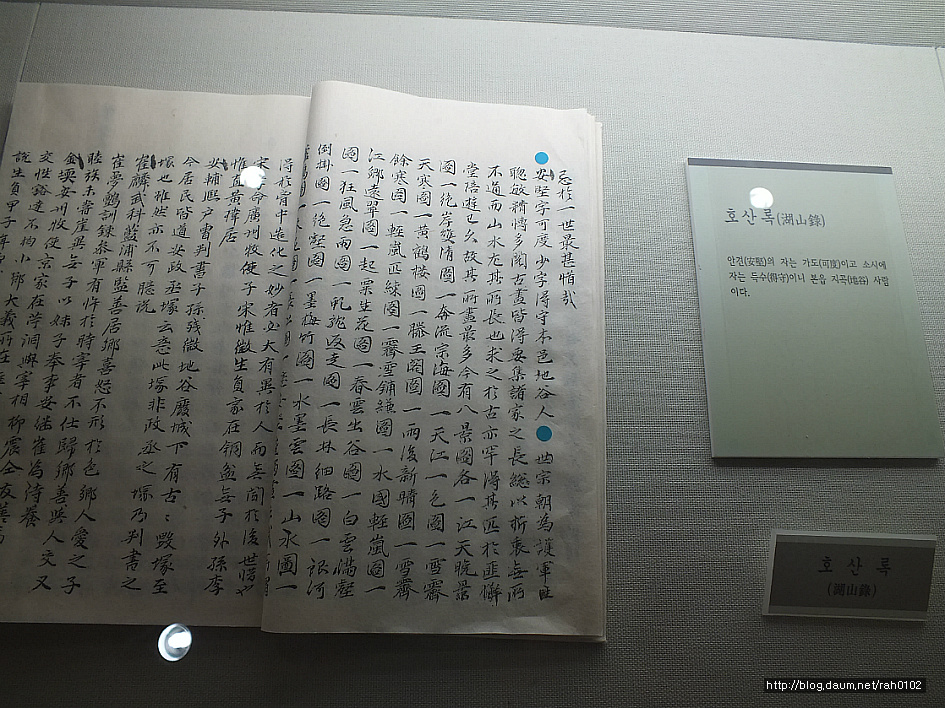 忘於一世最甚惜哉
安堅字可度少字得守本邑地谷人 世宗朝為護軍性
聰敏精博多閱古畫皆得要集諸家之長總以折衷無所
不通而山水尤其所長也求之於古亦罕得其匹於匪懈
堂倍遊已久故其所畫最多今有八景圖各一江天晚景
圖一絶岸雙清圖一奔流宗海圖一天江一色圖一雪霽
天寒圖一黃鶴樓圖一滕王閣圖一雨後新晴圖一雪霽
餘寒圖一輕嵐匹練圖一霽雪鋪縑圖一水國輕嵐圖一
江鄉遠翠圖一起粟生花圖一春雲出谷圖一白雲滿壑
圖一狂風急雨圖一 圖一長林細路圖一銀河
倒掛圖一絶壑圖一墨梅竹圖一水墨雲圖一山水圖一
得於胷中造化之妙者必大有異於人而無聞於後世惜也
宋 命廣州牧使子宋惟徵生員家在銅盆無子外孫李
惟直黃樺居
安輔熙戶曹判書子孫殘微地谷廢城下有古塚毀塚至
今居民皆道安政丞塚云意此塚非政丞之塚乃判書之
塚也雖然亦不可臆說
崔麟武科藍浦縣監善居鄉善怒不形於色鄉人愛之子
崔夢鶴訓鍊參軍有忤於時宰者不仕歸鄉善與人交又
睦族 無子以妹子奉事安 崔為侍養
安州牧使京家在芹洞與宰相柳震仝友善
交性豁達不拘小節大義所在
說生員甲子年
호산록(湖山錄)
안견(安堅)의 자는 가도(可度)이고 소시에
자는 득수(得守)이니 본읍 지곡(地谷) 사람
이다.
호산록
(湖山錄)
http://blog.daum.net/rah0102